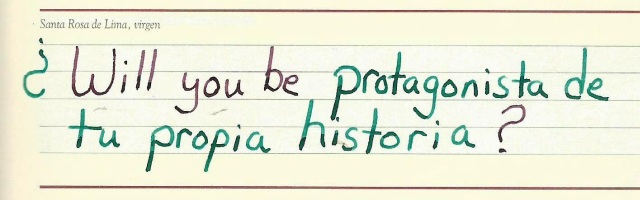 Santa Rosa de Lima, virgen
¿Will you be protagonista de
tu propia historia?